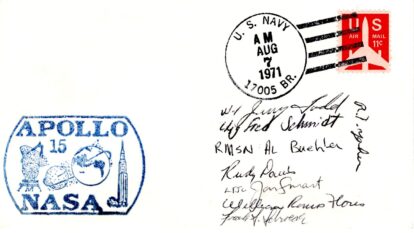 U. S. NAVY
AM
AUG
7
1971
17005 BR.
U S
AIR MAIL
11¢
APOLLO
15
NASA
Jerry
Fred Schmidt
RMSN AL Buehler
Rudy Davis
Jon Smart
William Ramos Flores
Frank